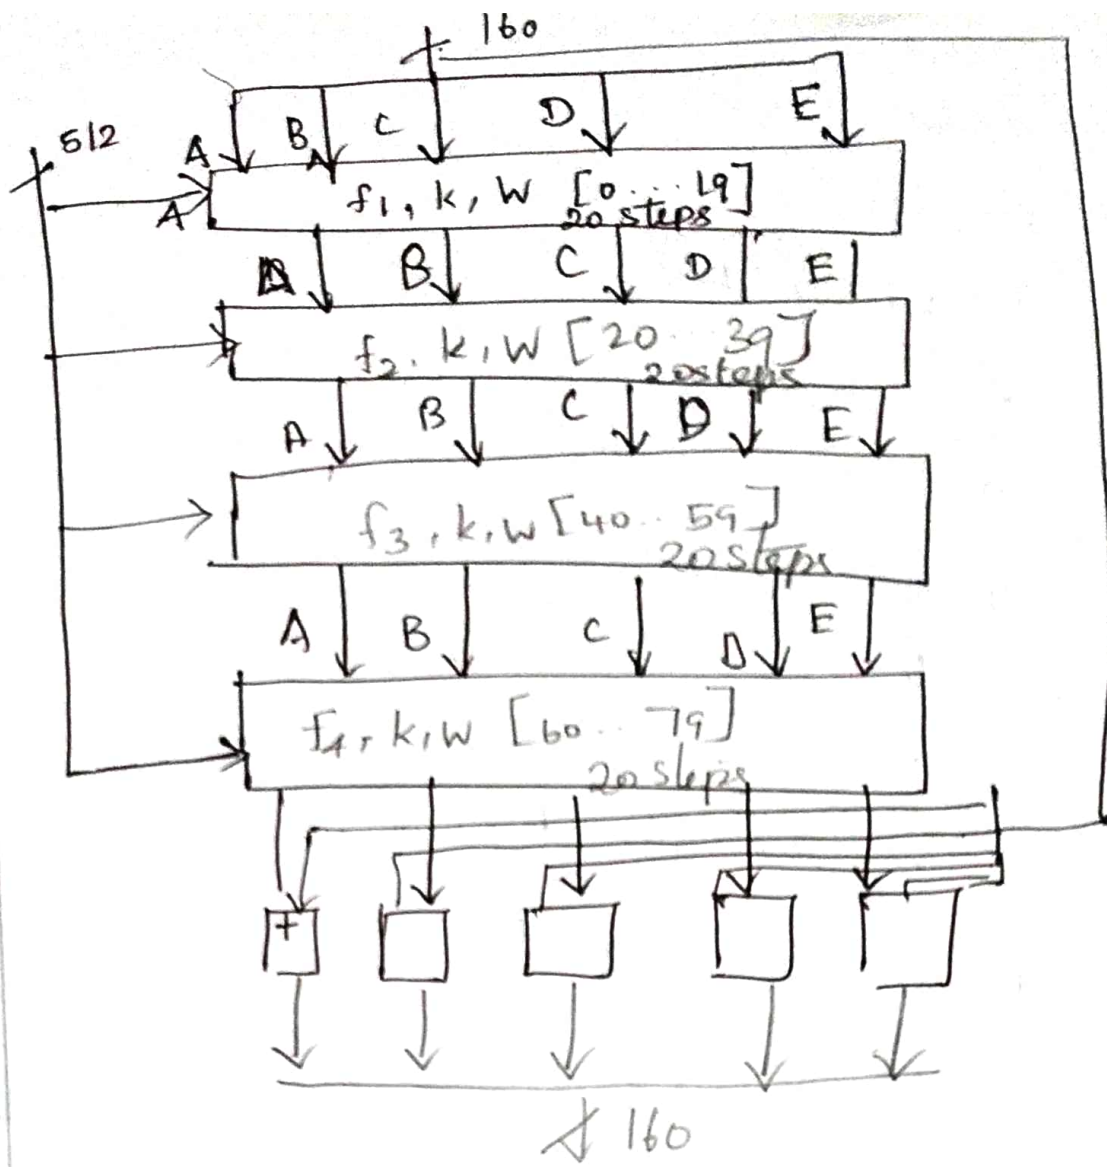 160
512
A B C D E
A
f1, k, W [0...19]
20 steps
A B C D E
f2. k, W [20..39]
20steps
A B C D E
f3, k, W [40..59]
20 steps
A B C D E
f4, k, W [60..79]
20 steps
+
160